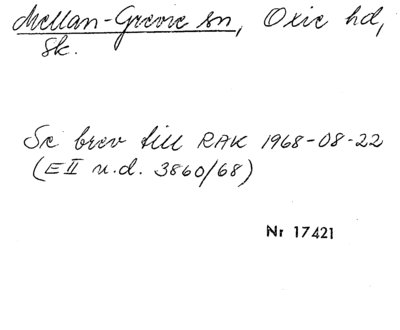 Mellan-Grevie sn, Oxie hd,
Sk.
Se brev till RAK 1968-08-22
(E II u.d. 3860/68)
Nr 17421